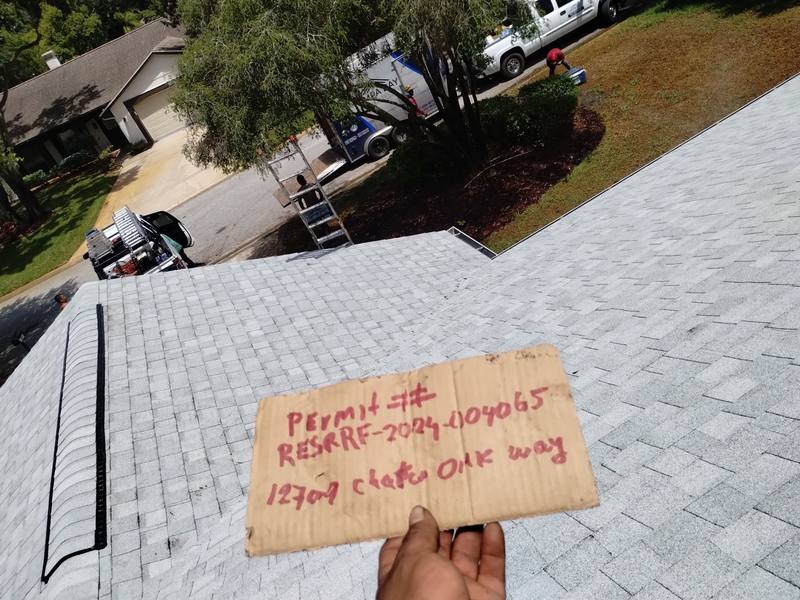 PErmit #
RESRRF-2024-004065
12709 chater OAK way